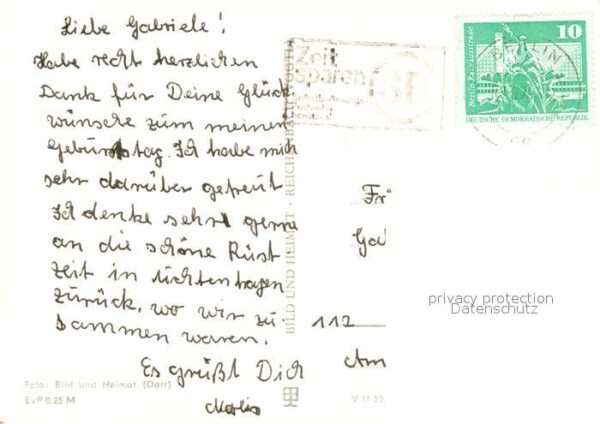 Liebe Gabriele!
Habe recht herzlichen
Dank für Deine Glück
wünsche zum meinen
Geburtstag. Ich habe mich
sehr darüber gefreut
Ich denke sehr gerne
an die schöne Rüst
zeit in Lichtenhagen
zurück, wo wir zu
sammen waren.
Es grüßt Dich
Foto: Bild und Heimat (Darr)
EVP 0,25 M
BILD UND HEIMAT · REICHENBACH (VOGTL)
V 11 50
Zeit
sparen
BERLIN
10
Berlin-Rathausstraße
DEUTSCHE DEMOKRATISCHE REPUBLIK
Fr
Ga
112
Am
privacy protection
Datenschutz